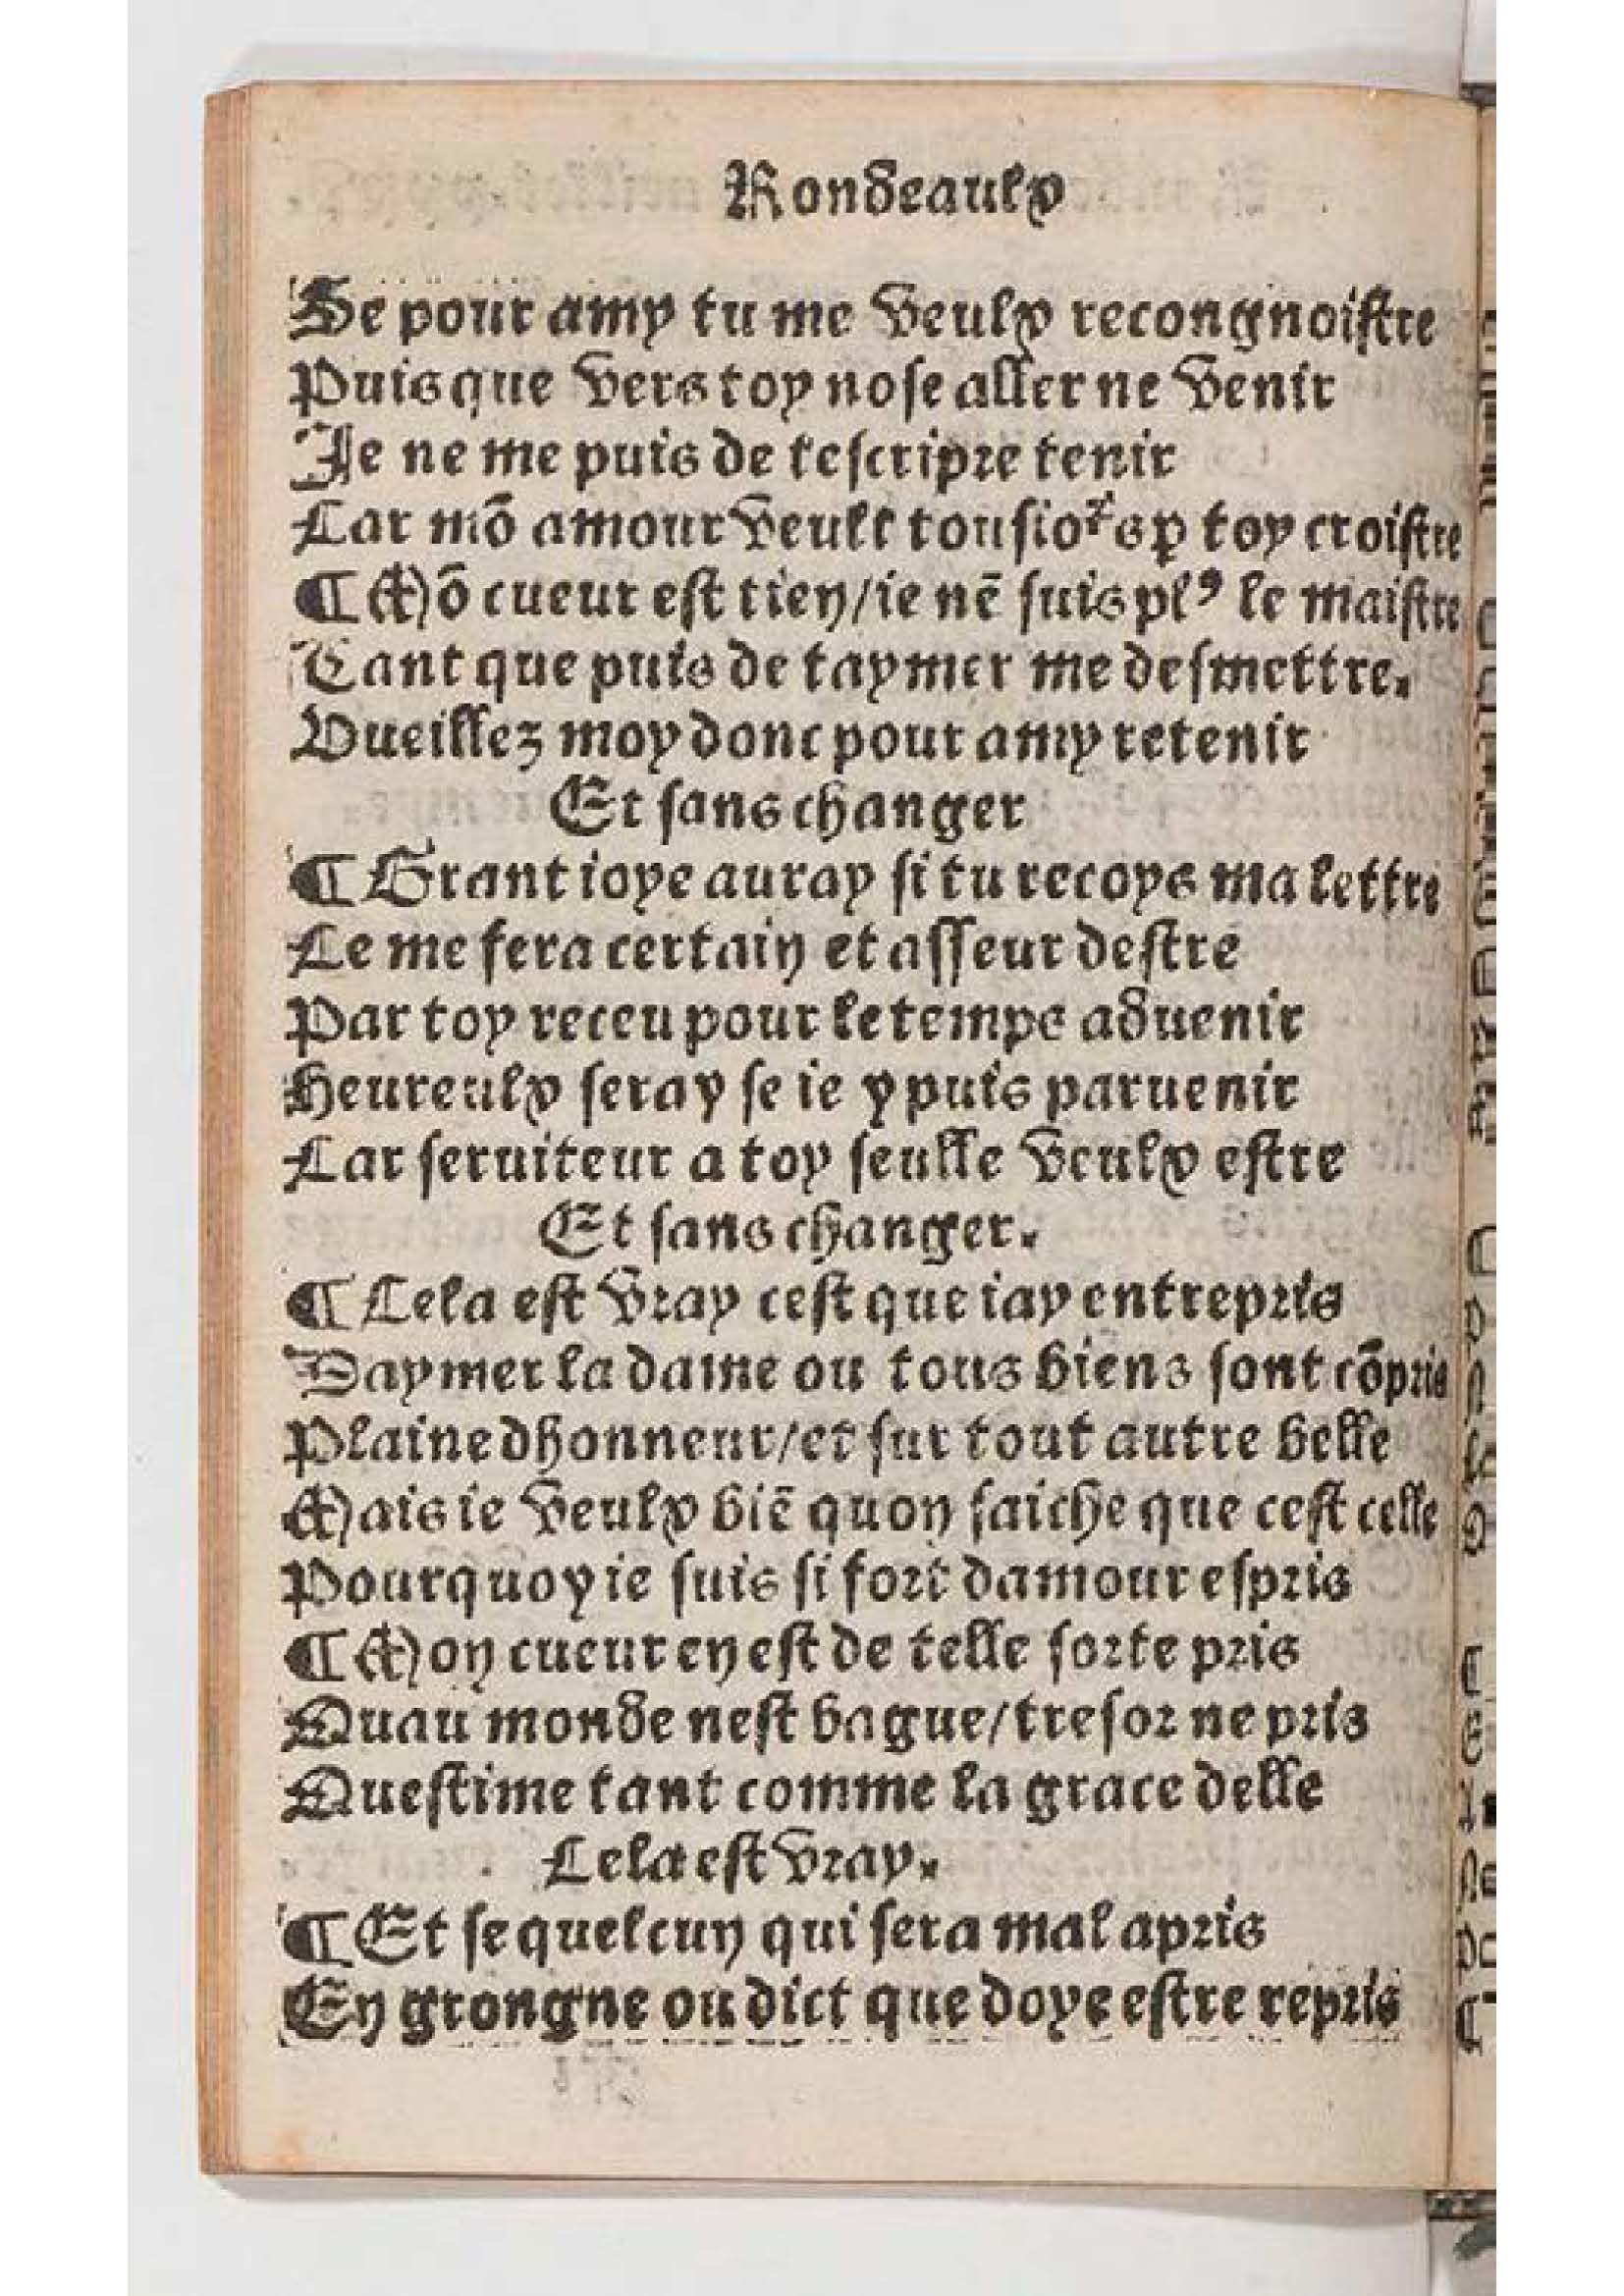 Rondeaulx
Se pour amy tu me veulx recongnoistre
Puis que vers toy nose aller ne venir
Je ne me puis de tescripre tenir
Car mõ amour veult tousioᷣs ꝑ toy croistre
¶ Mõ cueur est tien/ie nẽ suis plꝰ le maistre
Tant que puis de taymer me desmettre.
Vueillez moy donc pour amy retenir
Et sans changer
¶ Grant ioye auray si tu recoys ma lettre
Ce me fera certain et asseur destre
Par toy receu pour le temps aduenir
Heureulx seray se ie y puis paruenir
Car seruiteur a toy seulle veulx estre
Et sans changer.
¶ Cela est vray cest que iay entrepris
Daymer la dame ou tous biens sont cõpris
Plaine dhonneur/et sur tout autre belle
Mais ie veulx biẽ quon saiche que cest celle
Pourquoy ie suis si fort damour espris
¶ Mon cueur en est de telle sorte pris
Quau monde nest bague/tresor ne pris
Questime tant comme la grace delle
Cela est vray.
¶ Et se quelcun qui sera mal apris
En grongne ou dict que doye estre repris